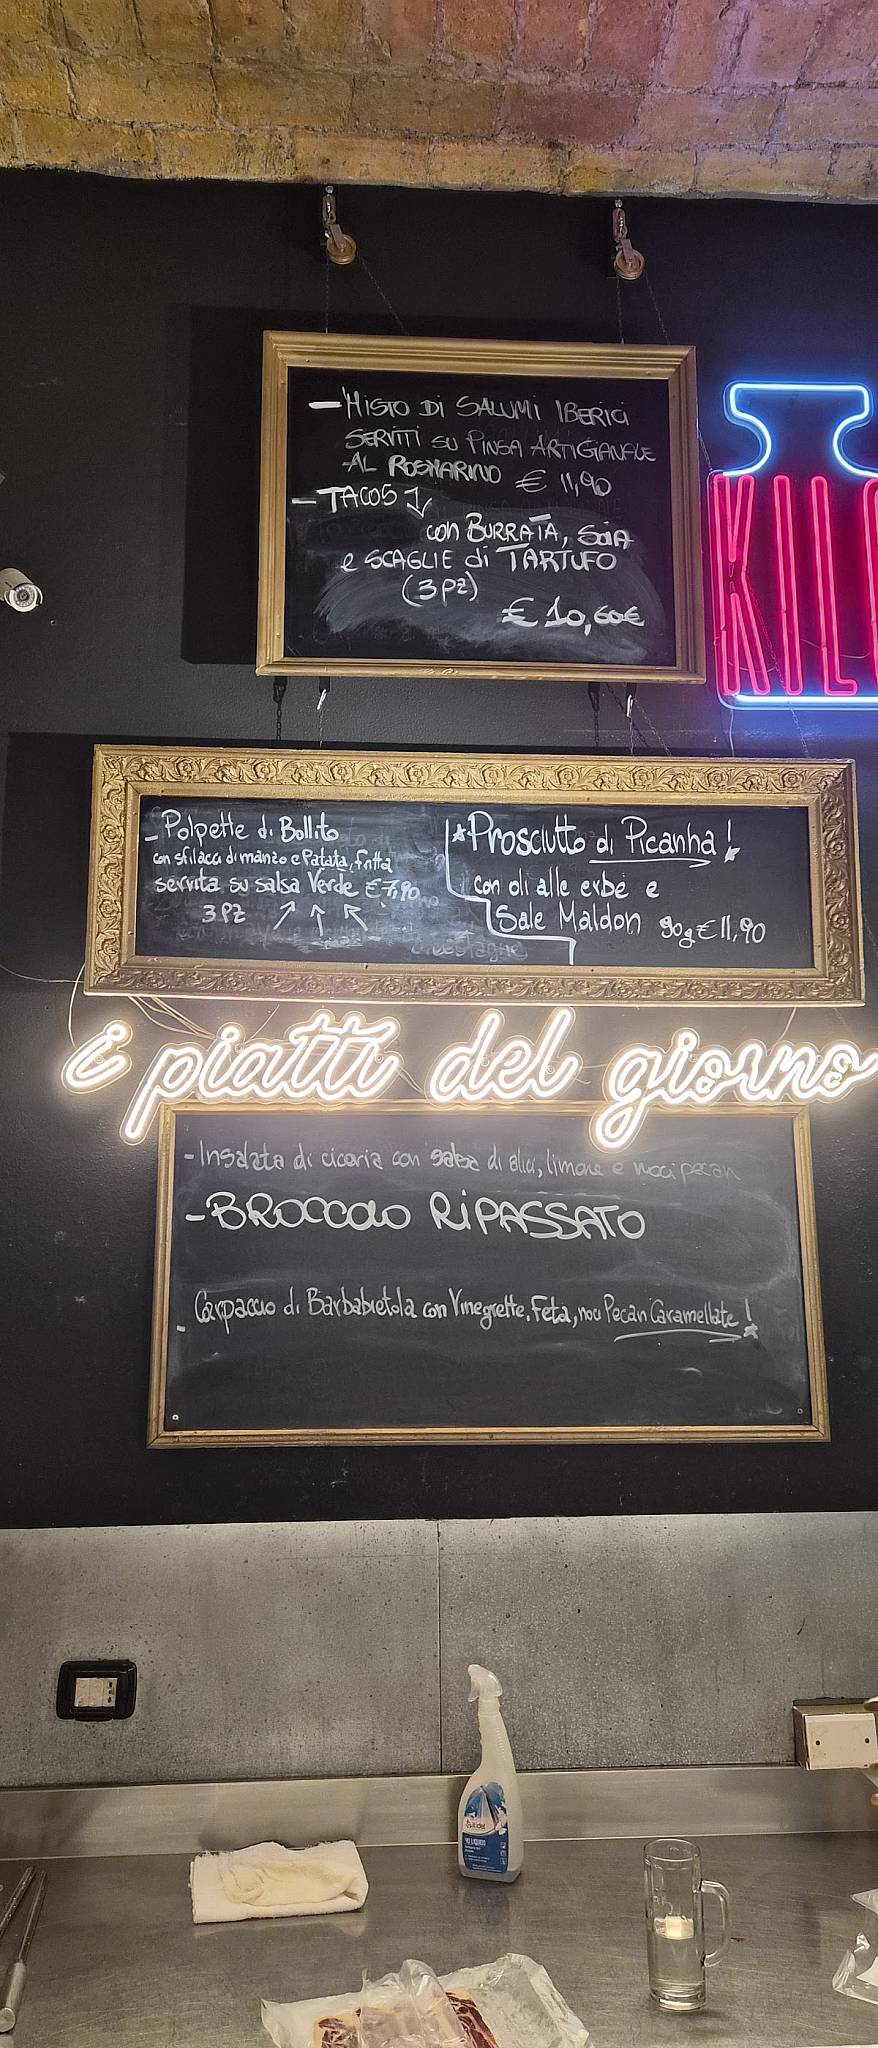 - MISTO DI SALUMI IBERICI
SERVITI SU PINSA ARTIGIANALE
AL ROSMARINO € 11,90
- TACOS
con BURRATA, SOIA
e SCAGLIE di TARTUFO
(3PZ)
€ 10,60€
KIL
- Polpette di Bollito
con sfilacci di manzo e Patata, fritta
servita su salsa Verde €7,90
3PZ
Prosciutto di Picanha!
con oli alle erbe e
Sale Maldon 90g €11,90
i piatti del giorno
- Insalata di cicoria con salsa di alici, limone e noci pecan
- BROCCOLO RIPASSATO
- Carpaccio di Barbabietola con Vinegrette, Feta, noci Pecan Caramellate!